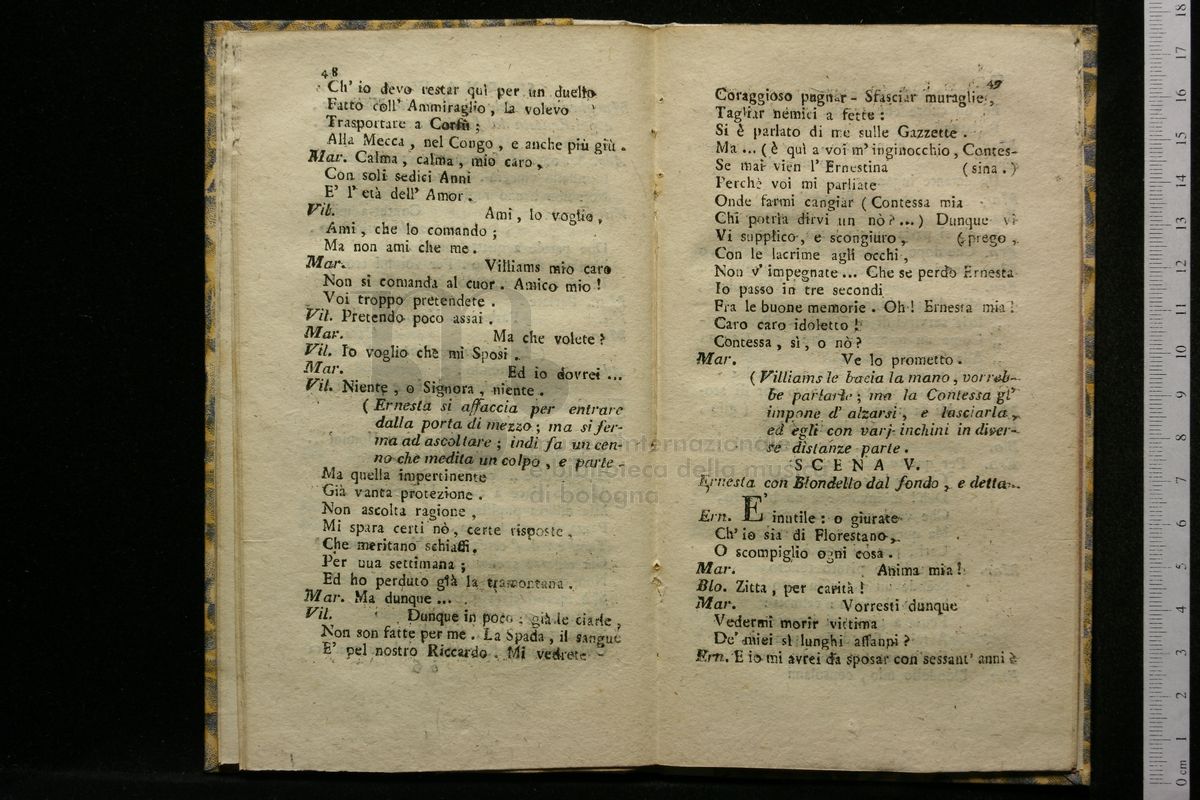 48
Ch' io devo restar quì per un duello
Fatto coll' Ammiraglio, la volevo
Trasportare a Corfù;
Alla Mecca, nel Congo, e anche più giù.
Mar. Calma, calma, mio caro,
Con soli sedici Anni
E' l' età dell' Amor.
Vil. Ami, lo voglio,
Ami, che lo comando;
Ma non ami che me.
Mar. Villiams mio caro
Non si comanda al cuor. Amico mio!
Voi troppo pretendete.
Vil. Pretendo poco assai.
Mar. Ma che volete?
Vil. Io voglio che mi Sposi.
Mar. Ed io dovrei ...
Vil. Niente, o Signora, niente.
( Ernesta si affaccia per entrare
dalla porta di mezzo; ma si fer-
ma ad ascoltare; indi fa un cen-
no che medita un colpo, e parte.
Ma quella impertinente
Già vanta protezione.
Non ascolta ragione,
Mi spara certi nò, certe risposte,
Che meritano schiaffi.
Per una settimana;
Ed ho perduto già la tramontana.
Mar. Ma dunque ...
Vil. Dunque in poco: già le ciarle,
Non son fatte per me. La Spada, il sangue
E' pel nostro Riccardo. Mi vedrete
49
Coraggioso pugnar - Sfasciar muraglie,
Tagliar nemici a fette:
Si è parlato di me sulle Gazzette.
Ma ... ( è quì a voi m' inginocchio, Contes-
Se mai vien l' Ernestina ( sina. )
Perchè voi mi parliate
Onde farmi cangiar ( Contessa mia
Chi potria dirvi un nò? ... ) Dunque vi
Vi supplico, e scongiuro, ( prego,
Con le lacrime agli occhi,
Non v' impegnate ... Che se perdo Ernesta
Io passo in tre secondi
Fra le buone memorie. Oh! Ernesta mia!
Caro caro idoletto!
Contessa, sì, o nò?
Mar. Ve lo prometto.
( Villiams le bacia la mano, vorreb-
be parlarle; ma la Contessa gl'
impone d' alzarsi, e lasciarla,
ed egli con varj inchini in diver-
se distanze parte.
SCENA V.
Ernesta con Blondello dal fondo, e detta.
Ern. E' inutile: o giurate
Ch' io sia di Florestano,
O scompiglio ogni cosa.
Mar. Anima mia!
Blo. Zitta, per carità!
Mar. Vorresti dunque
Vedermi morir vittima
De' miei sì lunghi affanni?
Ern. E io mi avrei da sposar con sessant' anni?
internazionale
e biblioteca della musica
di bologna